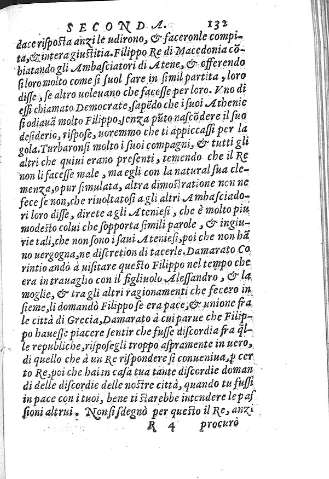 SECONDA. 132
dace risposta anzi le udirono, & faceronle compi-
ta, & intera giustitia. Filippo Re di Macedonia cõ
biatando gli Ambasciatori di Atene, & offerendo
si loro molto come si suol fare in simil partita, loro
disse, se altro uoleuano che facesse per loro. Vno di
essi chiamato Democrate, sapẽdo che i suoi Athenie
si odiauã molto Filippo, senza pũto nascõdere il suo
desiderio, rispose, uoremmo che ti appiccassi per la
gola. Turbaronsi molto i suoi compagni, & tutti gli
altri che quiui erano presenti, temendo che il Re
non li facesse male, ma egli con la natural sua cle-
menza, o pur simulata, altra dimostratione non ne
fece se non, che riuoltatosi a gli altri Ambasciado-
ri loro disse, direte agli Ateniesi, che è molto piu
modesto colui che sopporta simili parole, & ingiu-
rie tali, che non sono i saui Ateniesi, poi che non hã
no uergogna, ne discretion di tacerle. Damarato Co
rintio andò a uisitare questo Filippo nel tempo che
era in trauaglio con il figliuolo Alessandro, & la
moglie, & tra gli altri ragionamenti che fecero in
sieme, li domandò Filippo se era pace, & unione fra
le città di Grecia, Damarato à cui parue che Filip-
po hauesse piacere sentir che fusse discordia fra q̃l-
le republiche, risposegli troppo aspramente in uero,
di quello che à un Re rispondere si conueniua, p cer
to Re, poi che hai in casa tua tante discordie doman
di delle discordie delle nostre città, quando tu fussi
in pace con i tuoi, bene ti starebbe intendere le pas
sioni altrui. Non si sdegnò per questo il Re, anzi
R 4 procurò